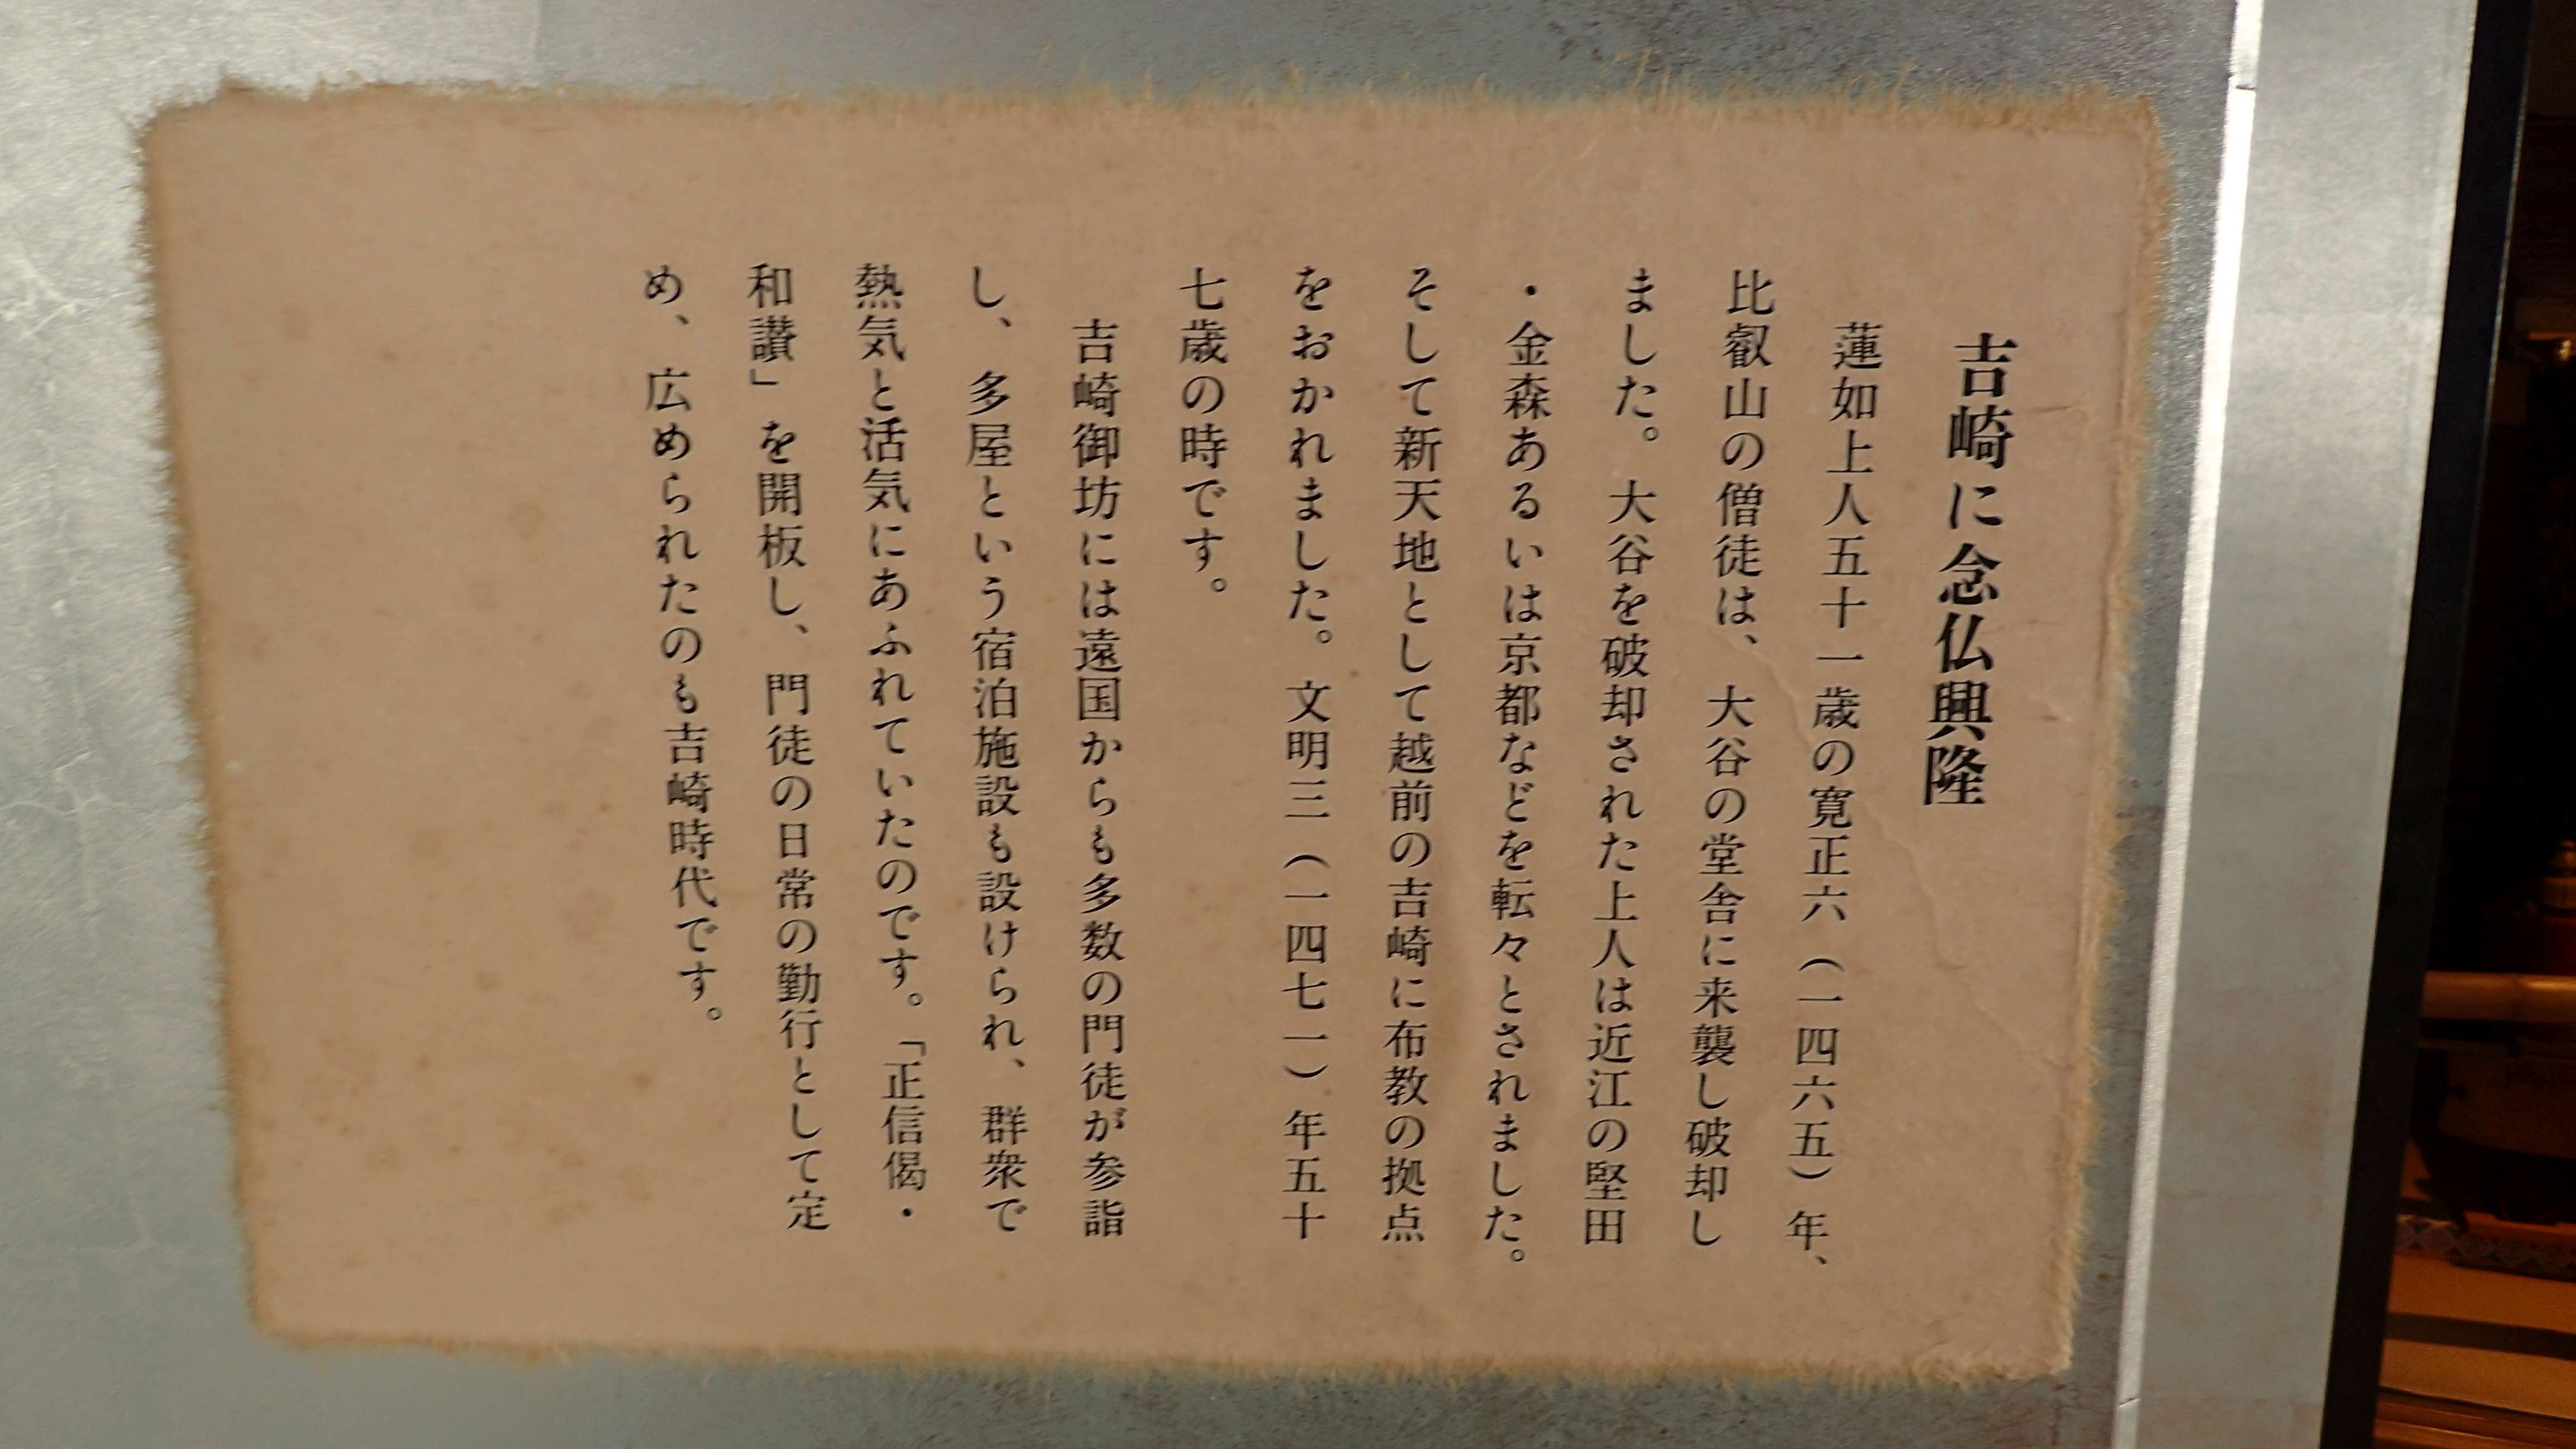 吉崎に念仏興隆
蓮如上人五十一歳の寛正六（一四六五）年、
比叡山の僧徒は、大谷の堂舎に来襲し破却し
ました。大谷を破却された上人は近江の堅田
・金森あるいは京都などを転々とされました。
そして新天地として越前の吉崎に布教の拠点
をおかれました。文明三（一四七一）年五十
七歳の時です。
吉崎御坊には遠国からも多数の門徒が参詣
し、多屋という宿泊施設も設けられ、群衆で
熱気と活気にあふれていたのです。「正信偈・
和讃」を開板し、門徒の日常の勤行として定
め、広められたのも吉崎時代です。